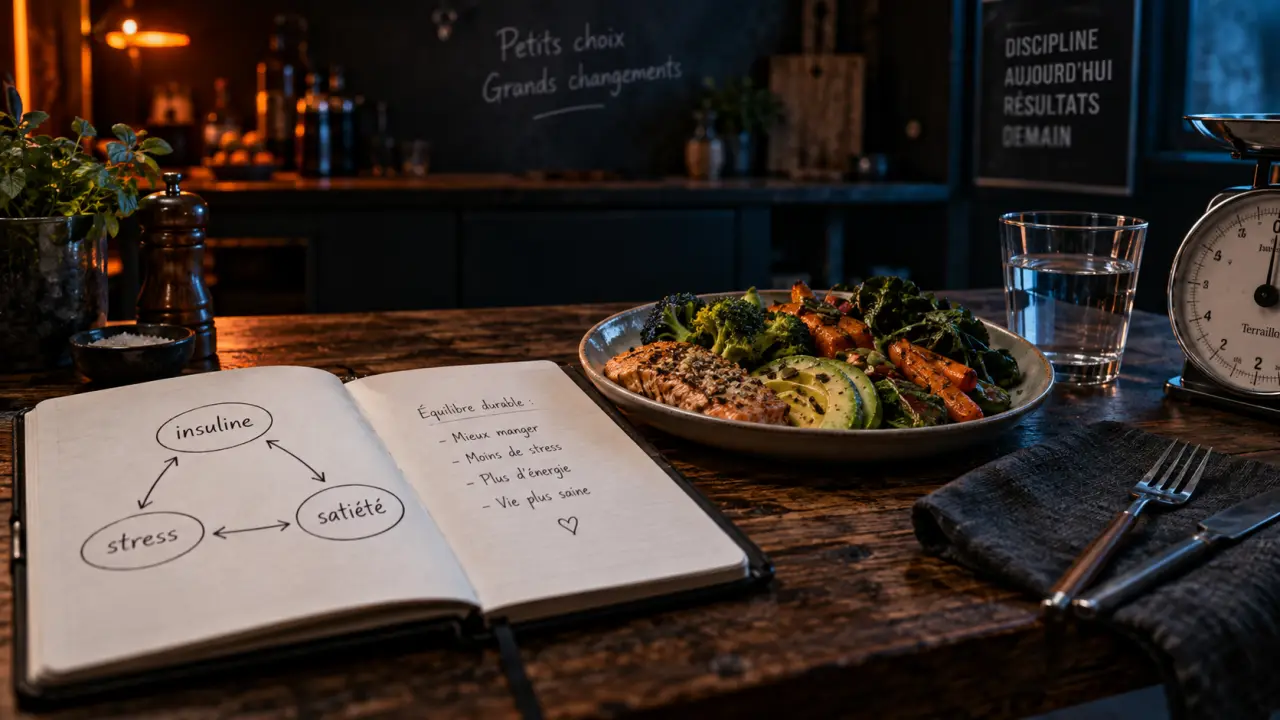 Petits choix
Grands changements
DISCIPLINE
AUJOURD'HUI
RÉSULTATS
DEMAIN
insuline
stress
satiété
Équilibre durable :
- Mieux manger
- Moins de stress
- Plus d'énergie
- Vie plus saine
♡
0
Terraillon